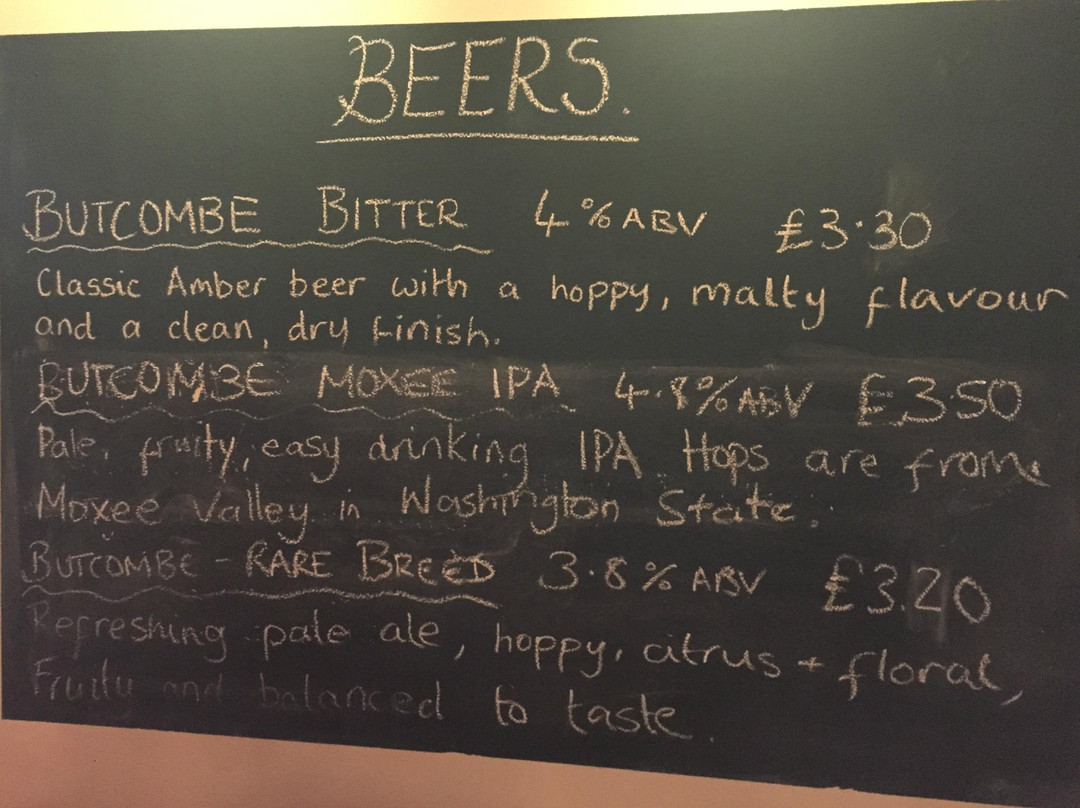 BEERS.
BUTCOMBE BITTER 4% ABV £3.30
Classic Amber beer with a hoppy, malty flavour
and a clean, dry finish.
BUTCOMBE MOXEE IPA 4.8% ABV £3.50
Pale, fruity, easy drinking IPA Hops are from
Moxee Valley in Washington State.
BUTCOMBE - RARE BREED 3.8% ABV £3.20
Refreshing pale ale, hoppy, citrus + floral,
Fruity and balanced to taste.